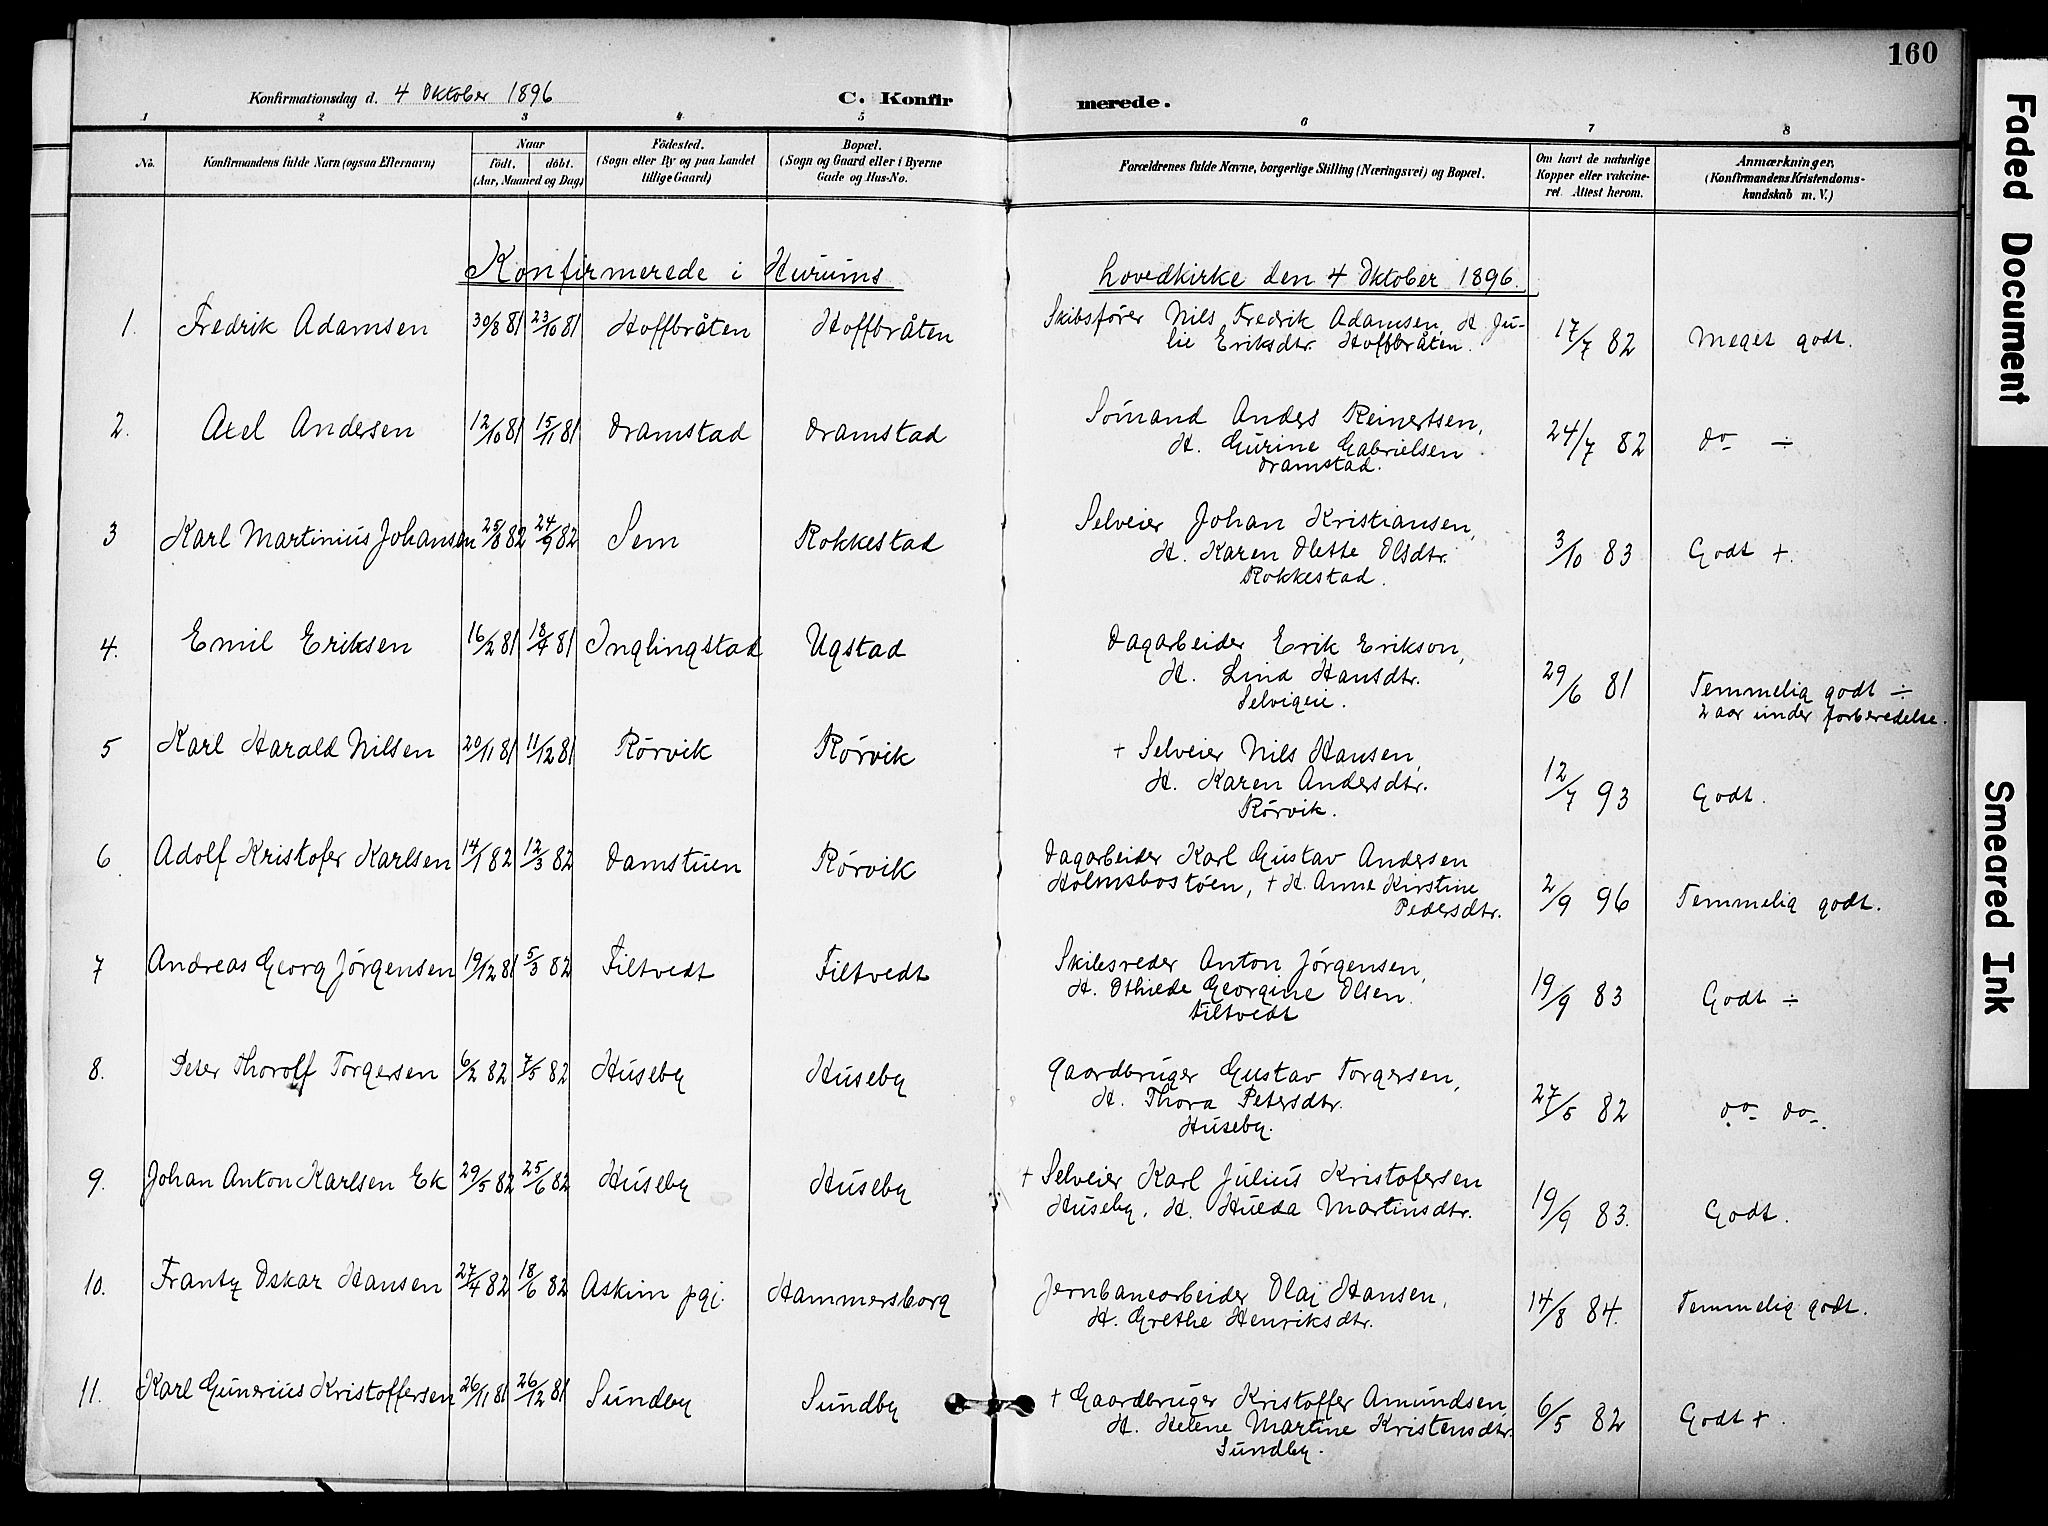 160
Konfirmationsdag d. 4 Oktober 1896
C. Konfirmerede.
1 2 3 4 5 6 7 8
No.
Konfirmandens fulde Navn (ogsaa Efternavn)
Naar
födt. döbt.
(Aar, Maaned og Dag)
Födested.
(Sogn eller By og paa Landet
tillige Gaard)
Bopæl.
(Sogn og Gaard eller i Byerne
Gade og Hus-No.
Forældrenes fulde Navne, borgerlige Stilling (Næringsvei) og Bopæl.
Om havt de naturlige
Kopper eller vakcine-
ret. Attest herom.
Anmærkninger,
(Konfirmandens Kristendoms-
kundskab m. V.)
Konfirmerede i Hurums hovedkirke den 4 Oktober 1896.
1. Fredrik Adamsen 30/8 81 23/10 81 Hoffbråten Hoffbråten Skibsfører Nils Fredrik Adamsen, H. Ju-
lie Eriksdtr. Hoffbråten. 17/7 82 Meget godt.
2. Axel Andersen 12/10 81 15/11 81 Dramstad Dramstad Sømand Anders Reinertsen,
H. Gurine Gabrielsen
Dramstad. 24/7 82 do ÷
3 Karl Martinius Johansen 25/8 82 24/9 82 Sem Rokkestad Selveier Johan Kristiansen,
H. Karen Olette Olsdtr.
Rokkestad. 3/10 83 Godt +.
4. Emil Eriksen 16/2 81 18/4 81 Inglingstad Ugstad Dagarbeider Erik Erikson,
H. Lina Hansdtr.
Selvigeie. 29/6 81 Temmelig godt ÷
2 aar under forberedelse.
5 Karl Harald Nilsen 20/11 81 11/12 81 Rørvik Rørvik + Selveier Nils Hansen,
H. Karen Andersdtr.
Rørvik. 12/7 93 Godt.
6. Adolf Kristofer Karlsen 14/1 82 12/3 82 Damstuen Rørvik Dagarbeider Karl Gustav Andersen
Holmsbostøen, + H. Anne Kirstine
Pedersdtr. 2/9 96 Temmelig godt.
7 Andreas Georg Jørgensen 19/12 81 5/3 82 Filtvedt Filtvedt Skibsreder Anton Jørgensen,
H. Othilde Georgine Olsen.
Filtvedt 19/9 83 Godt ÷
8. Peter Thorolf Torgersen 6/2 82 7/5 82 Huseby Huseby Gaardbruger Gustav Torgersen,
H. Thora Petersdtr.
Huseby. 27/5 82 do do.
9. Johan Anton Karlsen Ek 29/5 82 25/6 82 Huseby Huseby + Selveier Karl Julius Kristofersen
Huseby, H. Hulda Martinsdtr. 19/9 83. Godt.
10. Frantz Oskar Hansen 27/4 82 18/6 82 Askim pgj. Hammersborg Jernbanearbeider Olaf Hansen,
H. Grethe Henriksdtr. 14/8 84. Temmelig godt.
11. Karl Gunerius Kristoffersen 26/11 81 26/12 81 Sundby Sundby + Gaardbruger Kristoffer Amundsen,
H. Helene Martine Kristensdtr.
Sundby. 6/5 82 Godt +.
Faded Document
Smeared Ink